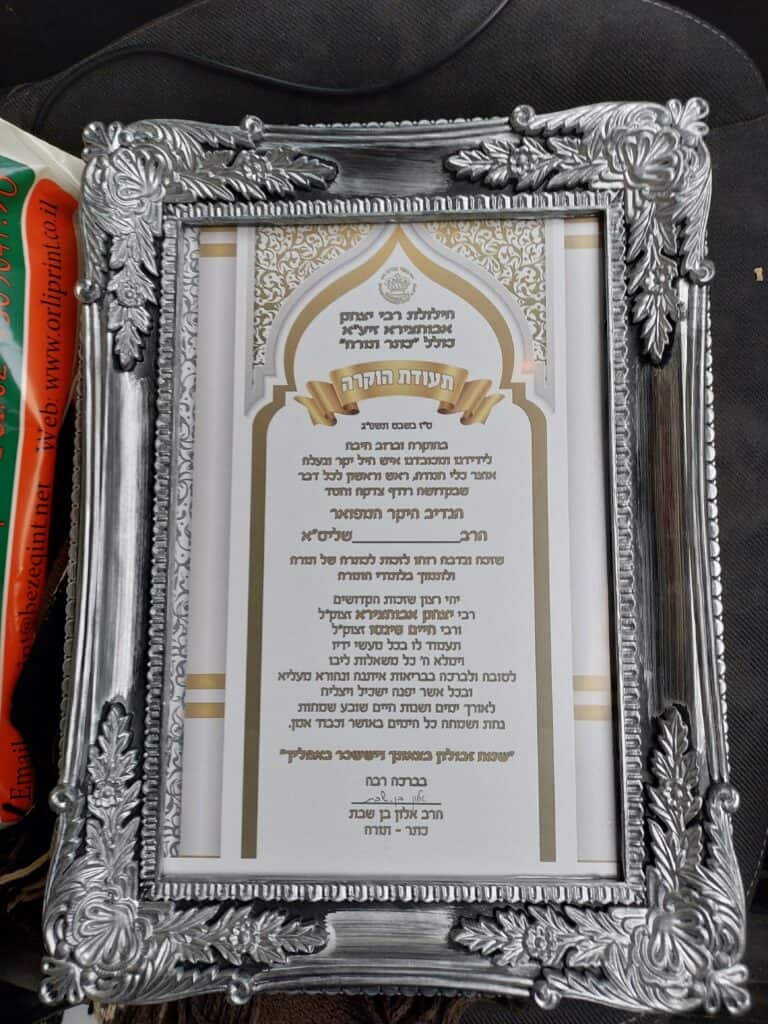 הילולת רבי יצחק
אבוחצירא זיע"א
כולל "כתר תורה"
תעודת הוקרה
ט"ז בשבט תשפ"ג
בהוקרה וברוב חיבה
לידידנו ומכובדנו איש חיל יקר ונעלה
אוצר כלי חמדה, ראש וראשון לכל דבר
שבקדושה רודף צדקה וחסד
הנדיב היקר המפואר
הרב שליט"א
שזכה ונדבה רוחו לזכות לכתרה של תורה
ולתמוך בלומדי התורה
יהי רצון שזכות הקדושים
רבי יצחק אבוחצירא זצוק"ל
ורבי חיים פינטו זצוק"ל
תעמוד לו בכל מעשי ידיו
וימלא ה' כל משאלות ליבו
לטובה ולברכה בבריאות איתנה ונהורא מעליא
ובכל אשר יפנה ישכיל ויצליח
לאורך ימים ושנות חיים שובע שמחות
נחת ושמחה כל הימים באושר וכבוד אמן.
"שמח זבולון בצאתך ויששכר באהליך"
בברכה רבה
אלון בן שבת
הרב אלון בן שבת
כתר - תורה
Web: www.orliprint.co.il
@bezeqint.net
Email